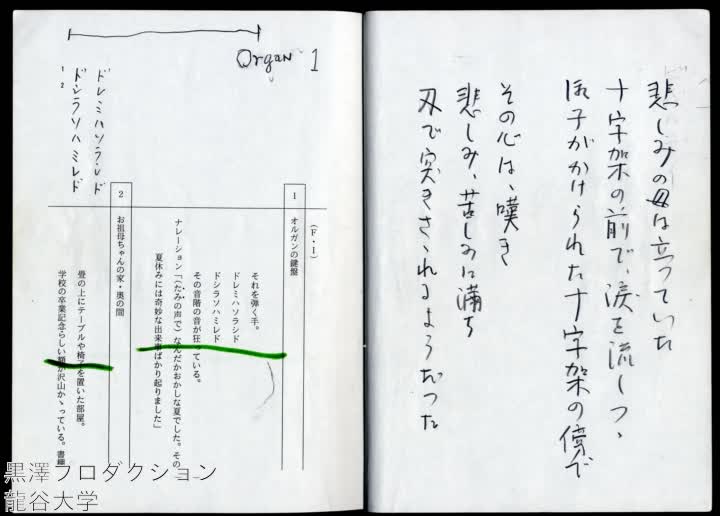 悲しみの母は立っていた
十字架の前で、涙を流しつゝ、
御子がかけられた十字架の傍で
その心は、嘆き
悲しみ、苦しみに満ち
刃で突きさゝれるようだった
Organ 1
ドレミハソラシド
ドシラソハミレド
1
2
（F・I）
1 オルガンの鍵盤
それを弾く手。
ドレミハソラシド
ドシラソハミレド
その音階の音が狂っている。
ナレーション「（たみの声で）なんだかおかしな夏でした。その
夏休みには奇妙な出来事ばかり起りました」
2 お祖母ちゃんの家・奥の間
畳の上にテーブルや椅子を置いた部屋。
学校の卒業記念らしい額が沢山かゝっている。書棚
黒澤プロダクション
龍谷大学